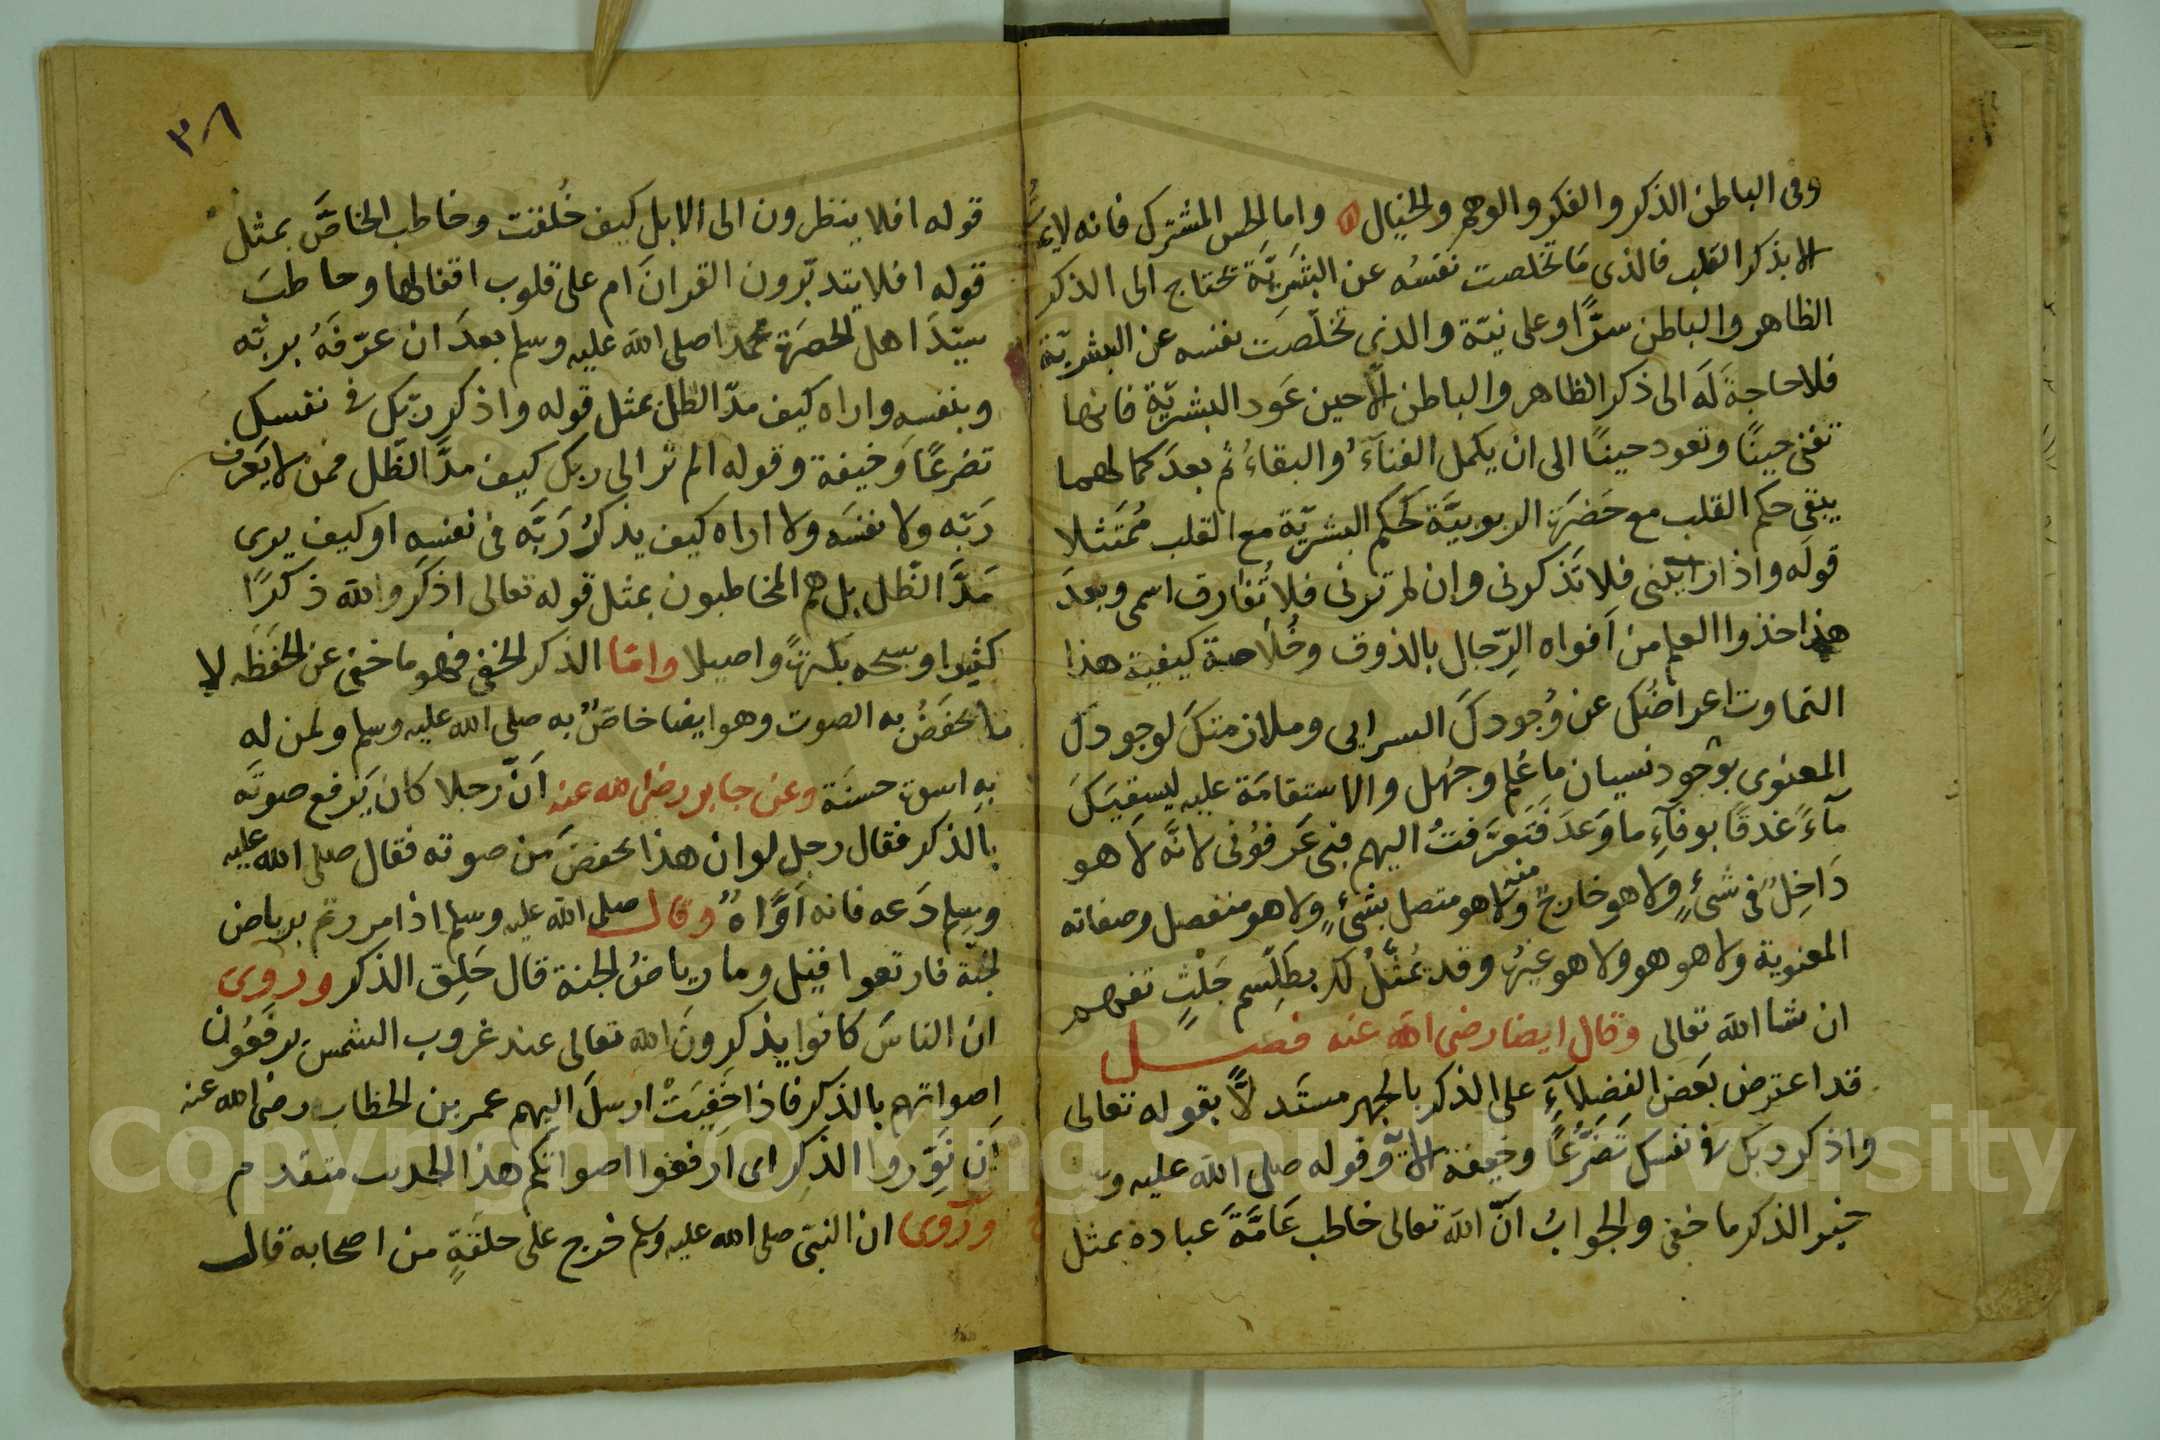 وفى الباطن الذكر والفكر والوهم والخيال واما الحس المشترك فانه لا
الا بذكر القلب فالذى مَا تخلصت نفسُه عن البشَريَّة تحتاج الى الذكر
الظاهر والباطن سرًّا وعلى نيّة والذى تخلّصَت نفسه عن البشريّة
فلا حاجةَ لَه الى ذكر الظاهر والباطن الّا حين عَود البشريّة فانها
تفنى حينًا وتعود حينًا الى ان يكمل الفنآءُ والبقاءُ ثم بعدَ كمالهما
يبقى حكم القلب مع حَضرَة الربوبيَّة كحُكم البشريّة مع القلب مُمتَثلا
قولَه واذا رايتَنى فلا تَذكرنى وان لم ترنى فلا تُفارق اسمى وبعدَ
هذا خذوا العلم من اَفواه الرّجال بالذوق وخُلاصة كيفية هذا
التماوت اعراضُك عن وُجودكَ السرابى وملازمتكَ لوجودك
المعنوى بوجود نسيان ما عُلم وجُهل والاستقامَة عليه ليسقيَكَ
مآءً غدقًا بوفآءِ ما وَعَدَ فَتَعرَّفتُ اليهم فبى عَرفوُنى لانَّه لا هو
دَاخِلٌ فى شىءٍ ولا هو خارجٌ منه ولا هو متصل بشىءٍ ولا هو منفصل وصفاته
المعنوية ولا هو هو ولا هو غيرُه وقد مُثّلُ لك بطَلِّسم جَلْتٍ تفهم
ان شا الله تعالى وقال ايضا رضى الله عنه فصل
قد اعترض بَعضُ الفضلآءِ على الذكر بالجهر مستَدلًّا بقوله تعالى
واذكر ربك فى نفسك تَضَرُّعًا وخيفة الآية وقوله صلى الله عليه وسلم
خير الذكر ما خفى والجوابُ انّ اللهَ تعالى خاطب عَامَّةَ عباده بمثل
٣٨
قوله افلا ينظرون الى الابل كيف خُلقت وخاطب الخاصَّ بمثل
قوله افلا يتدبّرون القرانَ ام على قلوب اقفالها وخاطبَ
سيّدَ اهل الحضرَة محمدا صلى الله عليه وسلم بعدَ ان عرّفَهُ بربّه
وبنفسه واراه كيف مدّ الظل بمثل قوله واذكر ربّك فى نفسك
تضرعًا وَخيفة وقوله الم تر الى ربك كيف مدَّ الظّل فمن لا يَعرف
رَبّه ولا نفسَه ولا اراه كيف يذكرُ رَبَّه فى نفسِه او كيف يرى
مَدَّ الظّل بل هم المخاطبون بمثل قوله تعالى اذكروا الله ذكرًا
كثيرا وسبحوه بكرةً واصيلا وامّا الذكر الخفى فهو ما خفى عن الحَفَظه لا
ما يخفَضُ به الصوت وهو ايضا خاصٌّ به صلى الله عليه وسلم ولمن له
به اسوة حسنَة وعن جابر رضى الله عنه اَنّ رجلا كان يَرفع صوتَه
بالذكر فقال رجل لو ان هذا خفضَ مَن صوته فقال صلى الله عليه
وسلم دَعه فانه اَوّاهٌ وقال صلى الله عليه وسلم اذا مررتم برياض
الجنة فارتعوا قيل وما رياضُ الجنة قال حَلِق الذكر وروى
ان الناسَ كانوا يذكرونَ الله تعالى عند غروب الشمس يرفعُون
اصواتهم بالذكر فاذا خَفيَتْ ارسلَ اليهم عمر بن الخطاب رضى الله عنه
اَن نَوّروا الذكر اى اَرفعوا اصواتكم هذا الحديث متقدم
وروى ان النبى صلى الله عليه وسلم خرج على حلقةٍ من اصحابه قال
Copyright © King Saud University